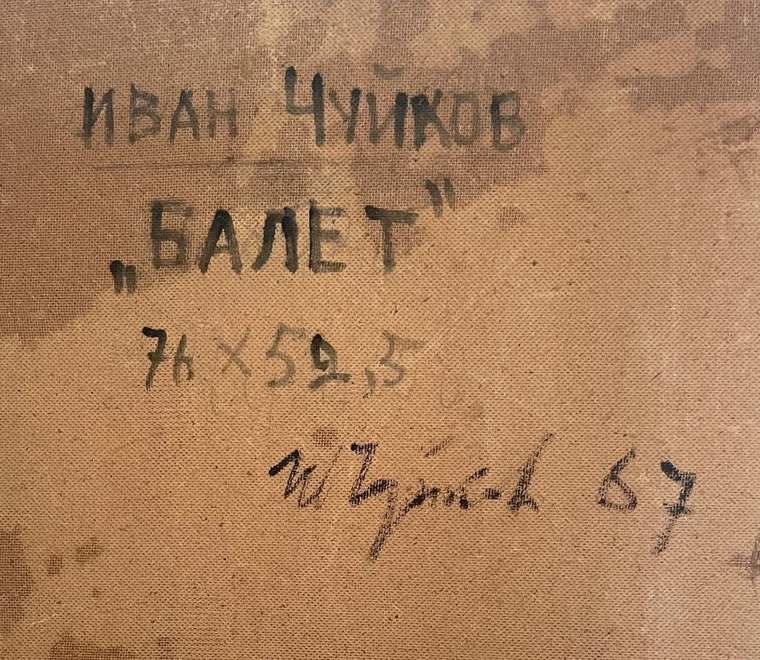 ИВАН ЧУЙКОВ
„БАЛЕТ”
76 × 52,5
И Чуйков 67